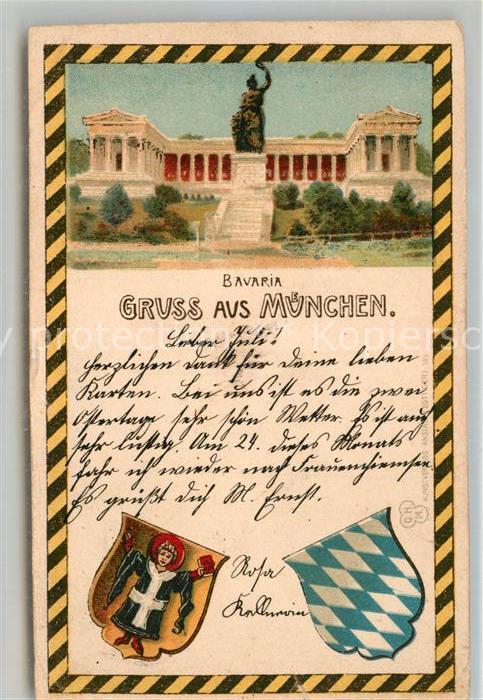 BAVARIA
GRUSS AUS MÜNCHEN.
Lieber Juli!
Herzlichen Dank für deine lieben
Karten. Bei uns ist es die zwei
Ostertage sehr schön Wetter. Es ist auch
sehr lustig. Am 24. dieses Monats
fahr ich wieder nach Frauenchiemsee.
Es grüßt dich M. Ernst.
Rosa